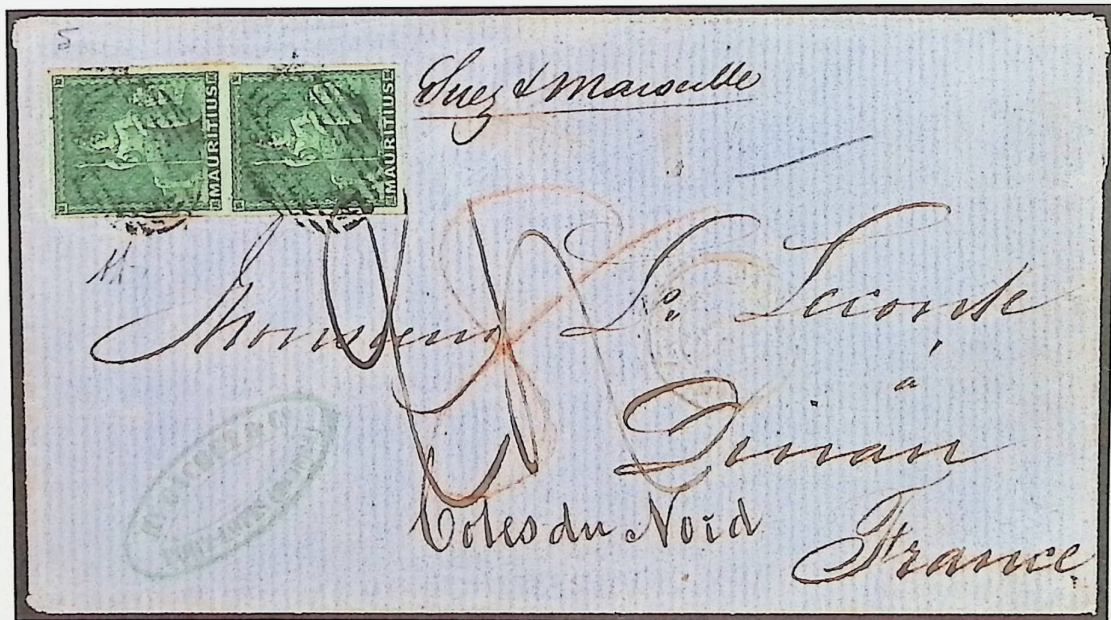 5
MAURITIUS
MAURITIUS
Suez & Marseille
Monsieur Ls. Leconte
à
Dinan
Côtes du Nord
France
8